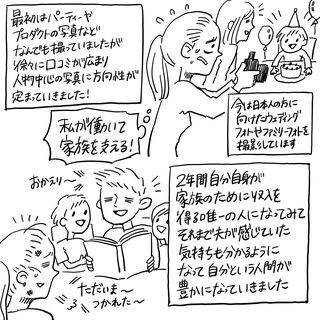 最初はパーティーや
プロダクトの写真など
なんでも撮っていましたが
徐々に口コミが広まり
人物中心の写真に方向性が
定まっていきました!
今は日本人の方に
向けたウェディング
フォトやファミリーフォトを
撮影しています
私が働いて
家族を支える!
おかえり～
ただいま～
つかれた～
2年間自分自身が
家族のために収入を
得る唯一の人になってみて
それまで夫が感じていた
気持ちも分かるように
なって自分という人間が
豊かになっていきました